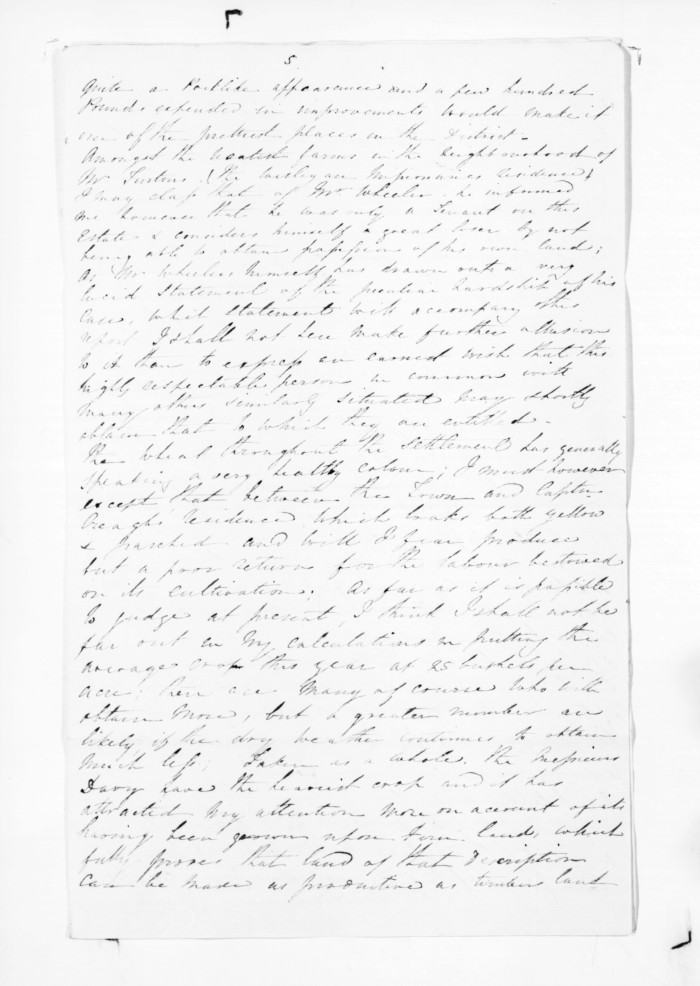 5
quite a Parklike appearance and a few hundred
Pounds expended in improvements would make it
one of the prettiest places in the District -
Amongst the neatest farms in the neighbourhood of
Mr Turtons (the Wesleyan Missionaries residence)
I may class that of Mr Wheeler - he informed
me however that he was only a Tenant on this
Estate & considers himself a great loser by not
being able to obtain possession of his own land;
as Mr Wheeler himself has drawn out a very
lucid Statement of the peculiar hardship of his
Case, which statement will accompany this
report I shall not here make further allusion
to it than to express an earnest wish that this
highly respectable person in common with
many others similarly situated may shortly
obtain that to which they are entitled -
The wheat throughout the settlement has generally
speaking a very healthy colour; I must however
except that between the Town and Captn
Creaghs residence which looks both yellow
& parched and will I fear produce
but a poor return for the labour bestowed
on its cultivation. As far as it is possible
to judge at present, I think I shall not be
far out in my calculations in putting the
average crop this year at 25 bushels per
acre; there are many of course who will
obtain more, but a greater number are
likely if the dry weather continues to obtain
much less; Taken as a whole, the Messieurs
Davy have the heaviest crop and it has
attracted my attention more on account of its
having been grown upon Fern land, which
fully proves that land of that description
can be made as productive as timber land